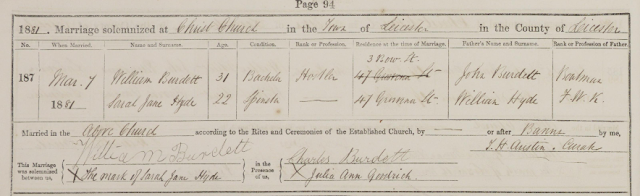 Page 94
1881. Marriage solemnized at Christ Church in the Town of Leicester in the County of Leicester
No. When Married. Name and Surname. Age. Condition. Rank or Profession. Residence at the time of Marriage. Father's Name and Surname. Rank or Profession of Father.
3 Bow St.
187 Mar. 7 William Burdett 31 Bachelor Hostler 47 St John Burdett
1881 Sarah Jane Hyde 22 Spinster — 47 St William Hyde F.W.K.
Married in the Above Church according to the Rites and Ceremonies of the Established Church, by — or after Banns by me,
William Burdett Charles Burdett T. H. Austin, Curate
This Marriage was solemnized between us, in the Presence of us,
X The mark of Sarah Jane Hyde X Julia Ann Goodrich